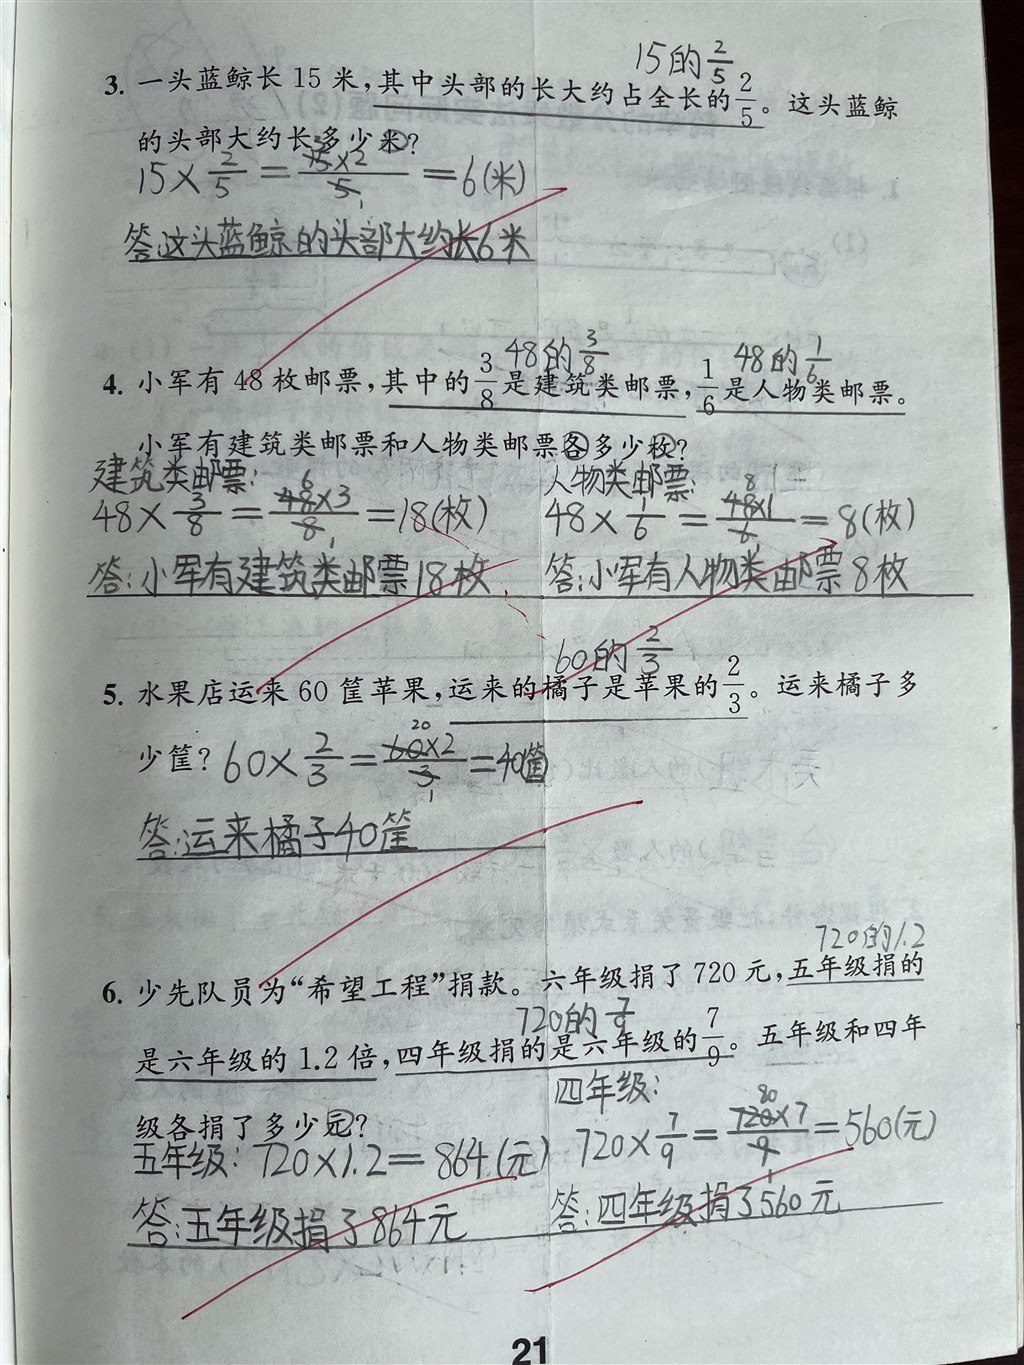 15的2/5
3. 一头蓝鲸长 15 米，其中头部的长大约占全长的2/5。这头蓝鲸
的头部大约长多少米？
15×2/5=15×2/5=6(米)
答:这头蓝鲸的头部大约长6米
48的3/8 48的1/6
4. 小军有 48 枚邮票，其中的3/8是建筑类邮票，1/6是人物类邮票。
小军有建筑类邮票和人物类邮票各多少枚？
建筑类邮票: 人物类邮票:
48×3/8=48×3/8=18(枚) 48×1/6=48×1/6=8(枚)
答:小军有建筑类邮票18枚 答:小军有人物类邮票8枚
60的2/3
5. 水果店运来 60 筐苹果，运来的橘子是苹果的2/3。运来橘子多
少筐？ 60×2/3=60×2/3=40筐
答:运来橘子40筐
720的1.2
6. 少先队员为“希望工程”捐款。六年级捐了 720 元，五年级捐的
720的7/9
是六年级的 1.2 倍，四年级捐的是六年级的7/9。五年级和四年
四年级:
级各捐了多少元？
五年级: 720×1.2=864(元) 720×7/9=720×7/9=560(元)
答:五年级捐了864元 答:四年级捐了560元
21